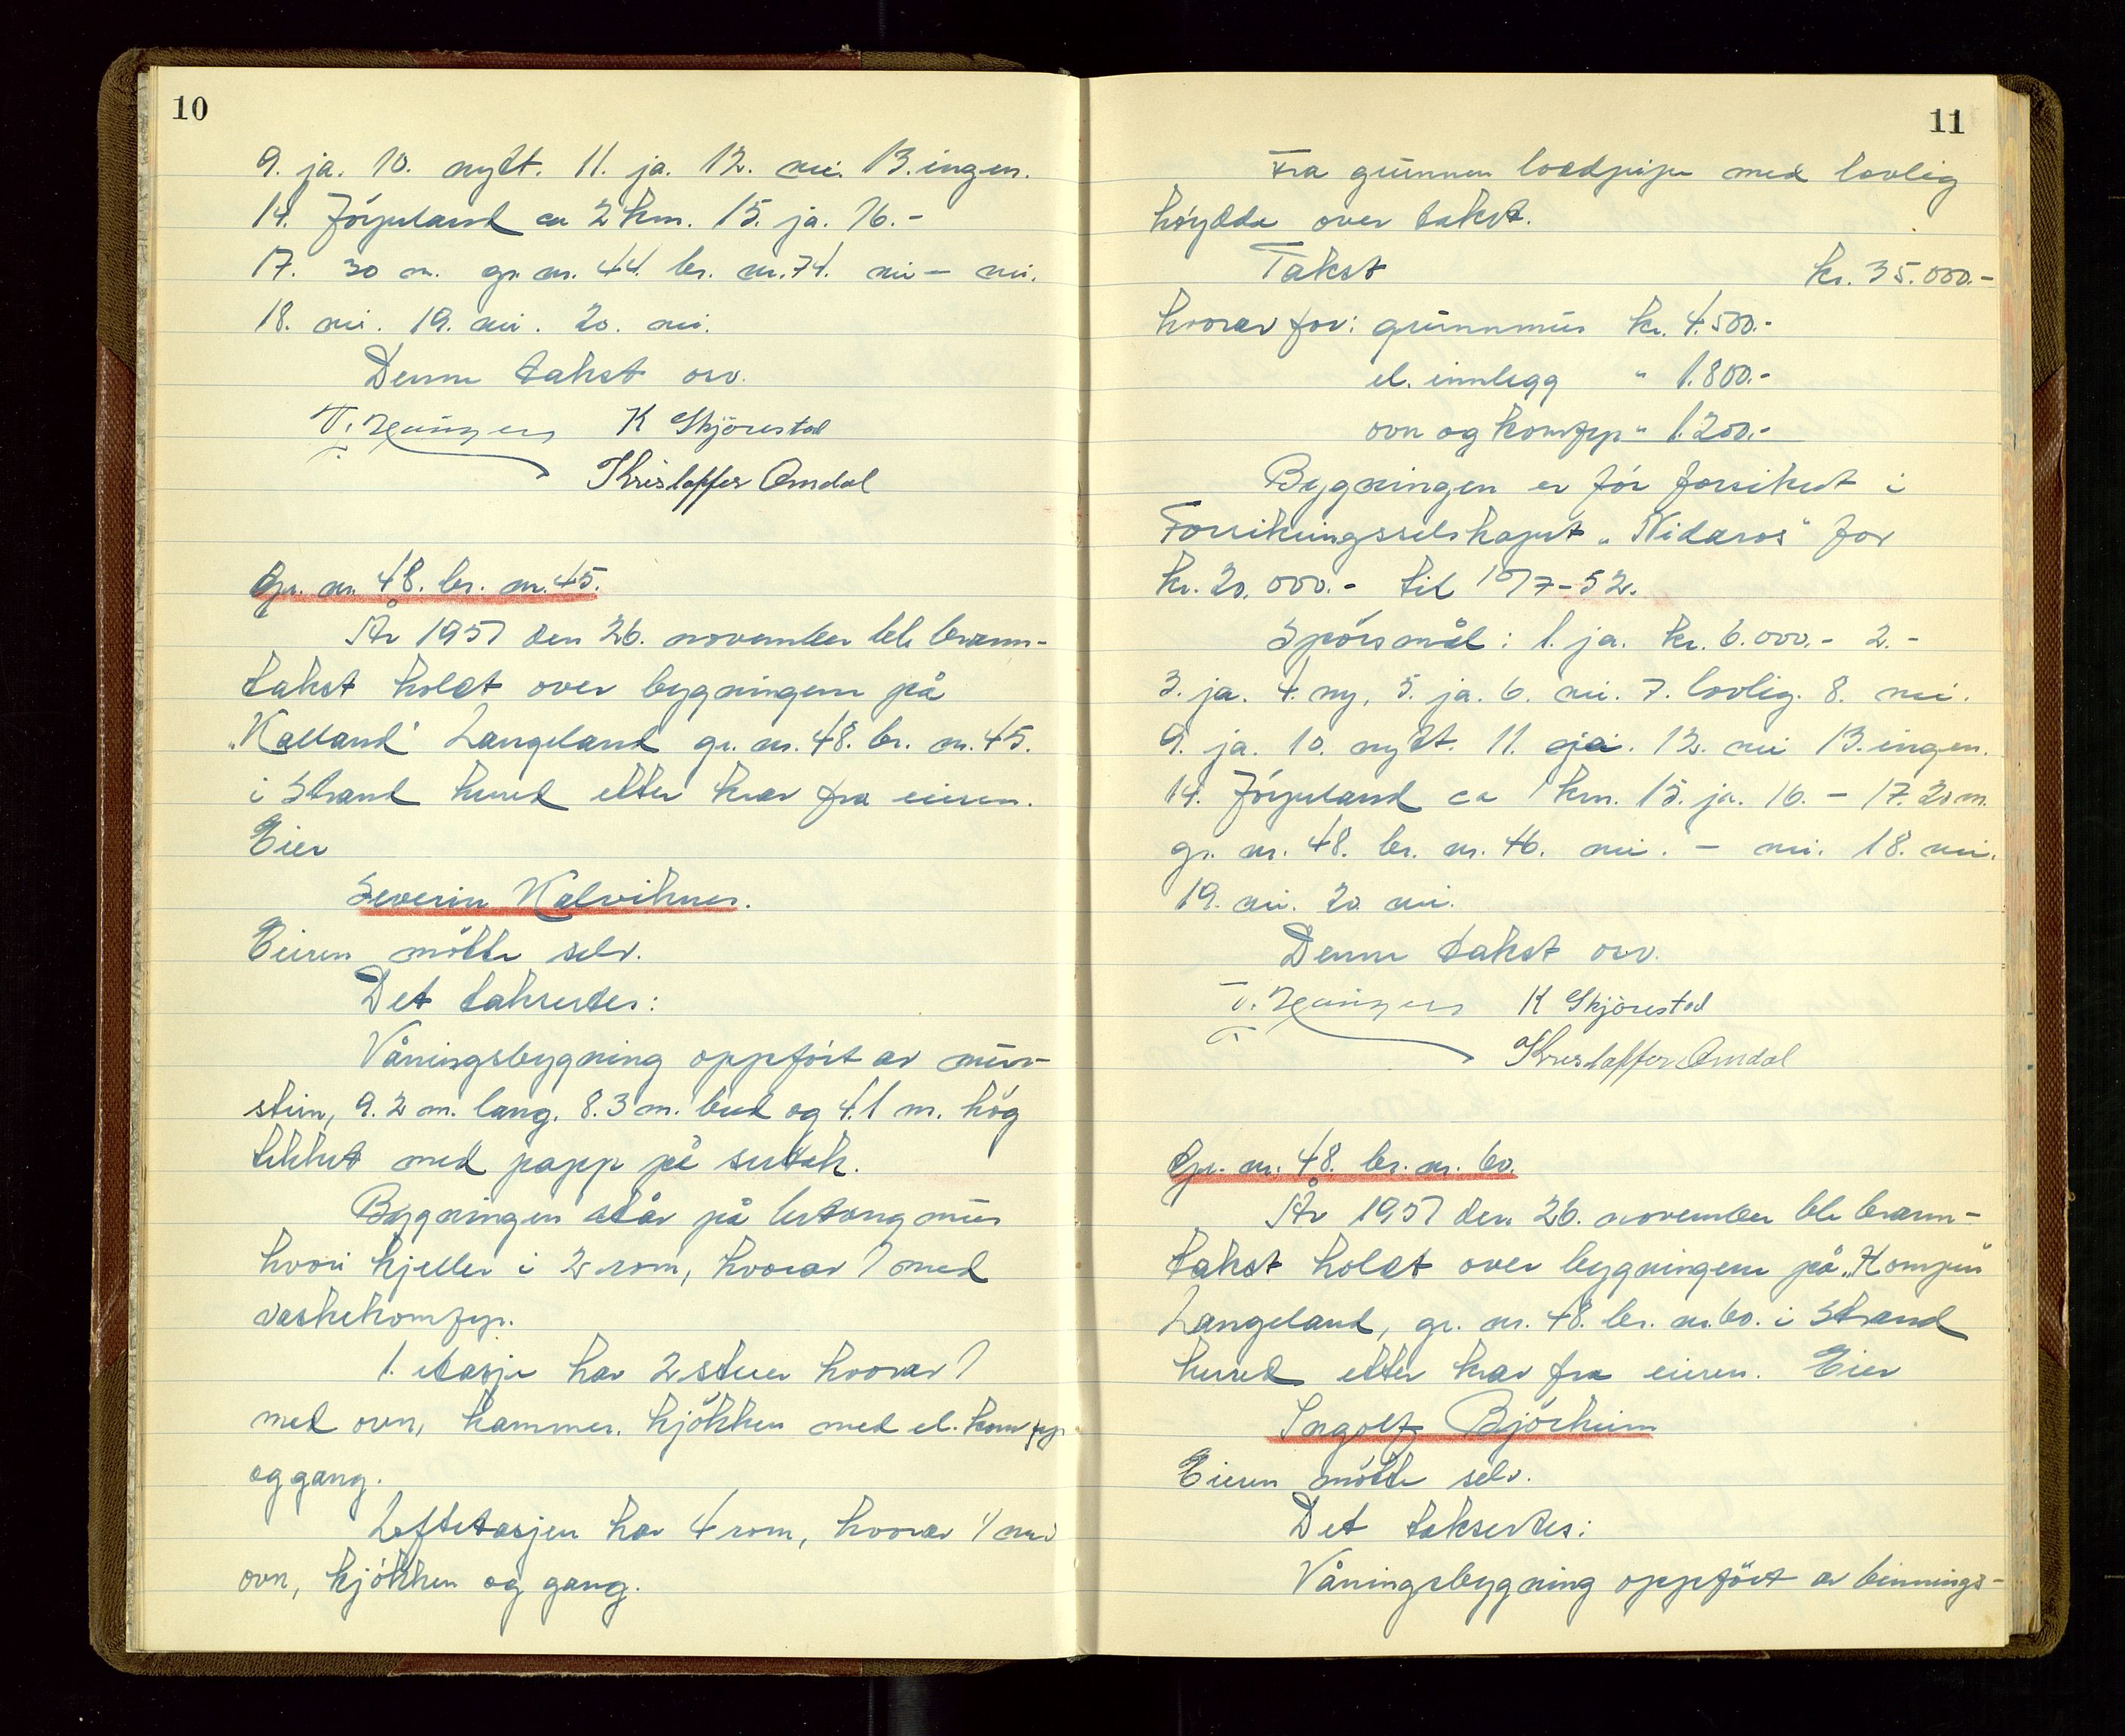 10
9. ja. 10. nytt. 11. ja. 12. nei. 13. ingen.
14. Jörpeland ca 2 km. 15. ja. 16. -
17. 30 m. gr. nr. 44. br. nr. 74. nei - nei.
18. nei. 19. nei. 20. nei.
Denne takst osv.
K Skjörestad
Kristoffer Amdal
Gr. nr. 48. br. nr. 45.
År 1951 den 26. november ble brann-
takst holdt over bygningene på
Langeland gr. nr. 48. br. nr. 45.
i Strand herred etter krav fra eieren.
Eier
Severin Kalviknes.
Eieren mötte selv.
Det takseertes:
Våningsbygning oppfört av mur-
stein, 9.2 m. lang, 8.3 m. bred og 4.1 m. hög
tekket med papp på sutak.
Bygningen står på betongmur
hvori kjeller i 2 rom, hvorav 1 med
vaskekomfyr.
1. etasje har 2 stuer hvorav 1
med ovn, kammer, kjökken med el. komfyr
og gang.
Loftetasjen har 4 rom, hvorav 1 med
ovn, kjökken og gang.
11
Fra grunnen loddpipe med lovlig
höydde over takst.
Takst kr. 35.000.-
hvorav for: grunnmur kr. 4.500.-
el. innlegg " 1.800.-
ovn og komfyr " 1.200.-
Bygningen er för forsikret i
Forsikringsselskapet "Nidaros" for
kr. 20.000.- til 10/7-52.
Spörsmål: 1. ja. kr. 6.000.- 2. -
3. ja. 4. ny, 5. ja. 6. nei. 7. lovlig. 8. nei.
9. ja. 10. nytt. 11. ja. 12. nei 13. ingen.
14. Jörpeland ca 1 km. 15. ja. 16. - 17. 20 m.
gr. nr. 48. br. nr. 46. nei. - nei. 18. nei.
19. nei. 20. nei.
Denne takst osv.
K Skjörestad
Kristoffer Amdal
Gr. nr. 48. br. nr. 60.
År 1951 den 26. november ble brann-
takst holdt over bygningene på
Langeland, gr. nr. 48. br. nr. 60. i Strand
herred etter krav fra eieren. Eier
Ingolf Björheim
Eieren mötte selv.
Det takseertes:
Våningsbygning oppfört av binnings-